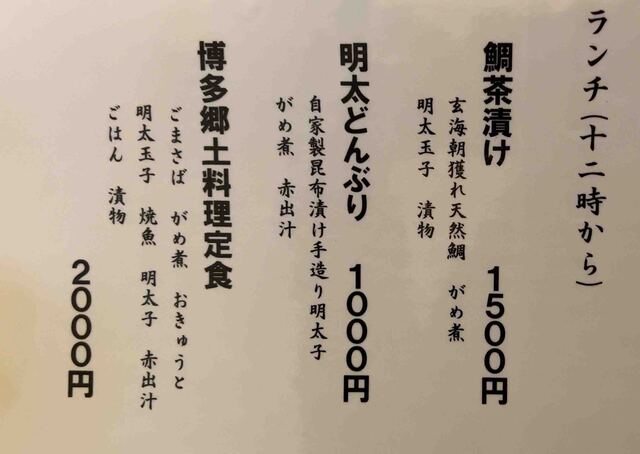 ランチ(十二時から)
鯛茶漬け 1500円
玄海朝獲れ天然鯛 がめ煮
明太玉子 漬物
明太どんぶり 1000円
自家製昆布漬け手造り明太子
がめ煮 赤出汁
博多郷土料理定食
ごまさば がめ煮 おきゅうと
明太玉子 焼魚 明太子 赤出汁
ごはん 漬物
2000円